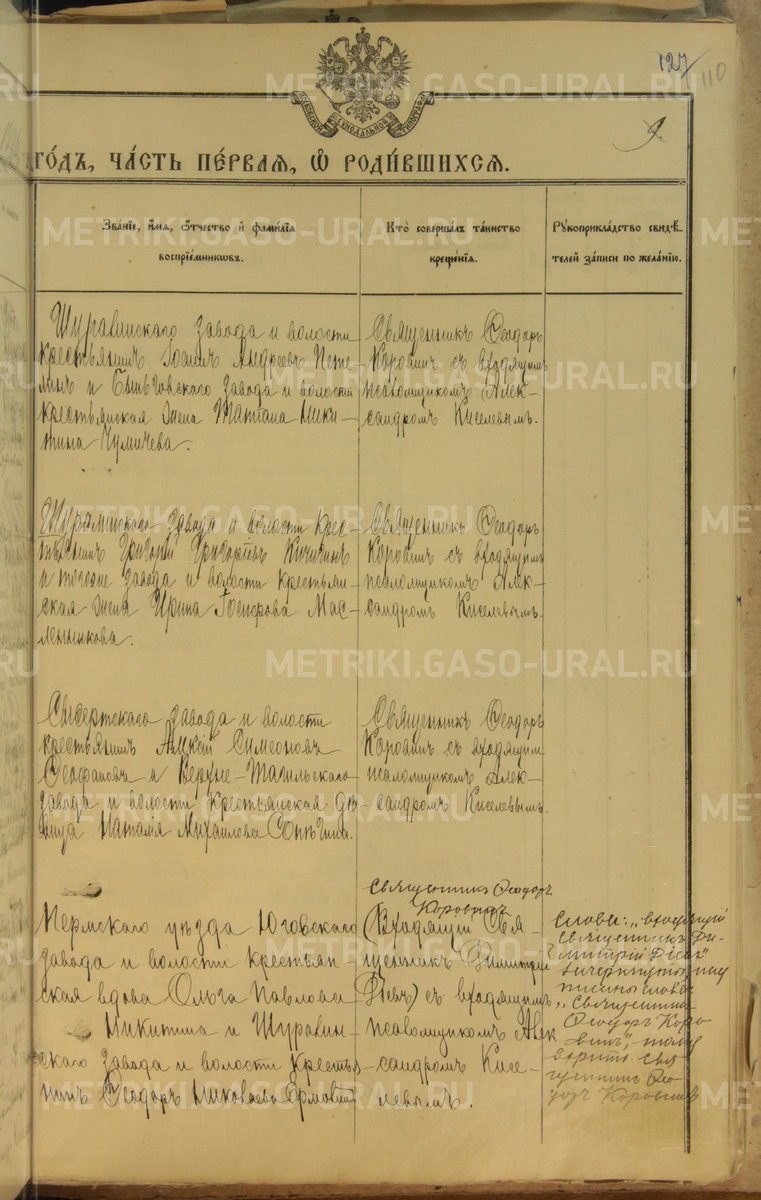 127
110
СѴНОДАЛЬНОЙ
9.
ГОДЪ, ЧАСТЬ ПЕРВАЯ, Ѡ РОДИВШИХСЯ.
Званіе, имя, отчество и фамилія
воспріемниковъ.
Кто совершалъ таинство
крещенія.
Рукоприкладство свидѣ-
телей записи по желанію.
Шуралинскаго завода и волости
крестьянинъ Іоаннъ Андреевъ
и завода и волости
крестьянская жена Татіана Ники-
тина Чумичева.
Священникъ Ѳеодоръ
Коровинъ съ входящимъ
псаломщикомъ Алек-
сандромъ Киселевымъ.
Шуралинскаго завода и волости крес-
тьянинъ Григорій Григорьевъ Кичигинъ
и тогоже завода и волости крестьян-
ская жена Ирина Іосифова Мас-
ленникова.
Священникъ Ѳеодоръ
Коровинъ съ входящимъ
псаломщикомъ Алек-
сандромъ Киселевымъ.
Сысертскаго завода и волости
крестьянинъ Алексій Симеоновъ
Ѳеофановъ и Верхне-Тагильскаго
завода и волости крестьянская дѣ-
вица Наталія Михаилова
Священникъ Ѳеодоръ
Коровинъ съ входящимъ
псаломщикомъ Алек-
сандромъ Киселевымъ.
Пермскаго уѣзда Юговскаго
завода и волости крестьян-
ская вдова Ольга Павлова
Никитина и Шуралин-
скаго завода и волости кресть-
нинъ Ѳеодоръ Николаевъ
Священникъ Ѳеодоръ
Коровинъ
(Входящій Свя-
щенникъ Димитрій
съ входящимъ
псаломщикомъ Алек
сандромъ Кисе-
левымъ.
Слова: "входящій
священникъ Ди-
митрій
зачеркнуты, над
писаны слова
"Священникъ
Ѳеодоръ Коро
винъ",
вѣрить. Свя
щенникъ Ѳео
доръ Коровинъ
METRIKI.GASO-URAL.RU